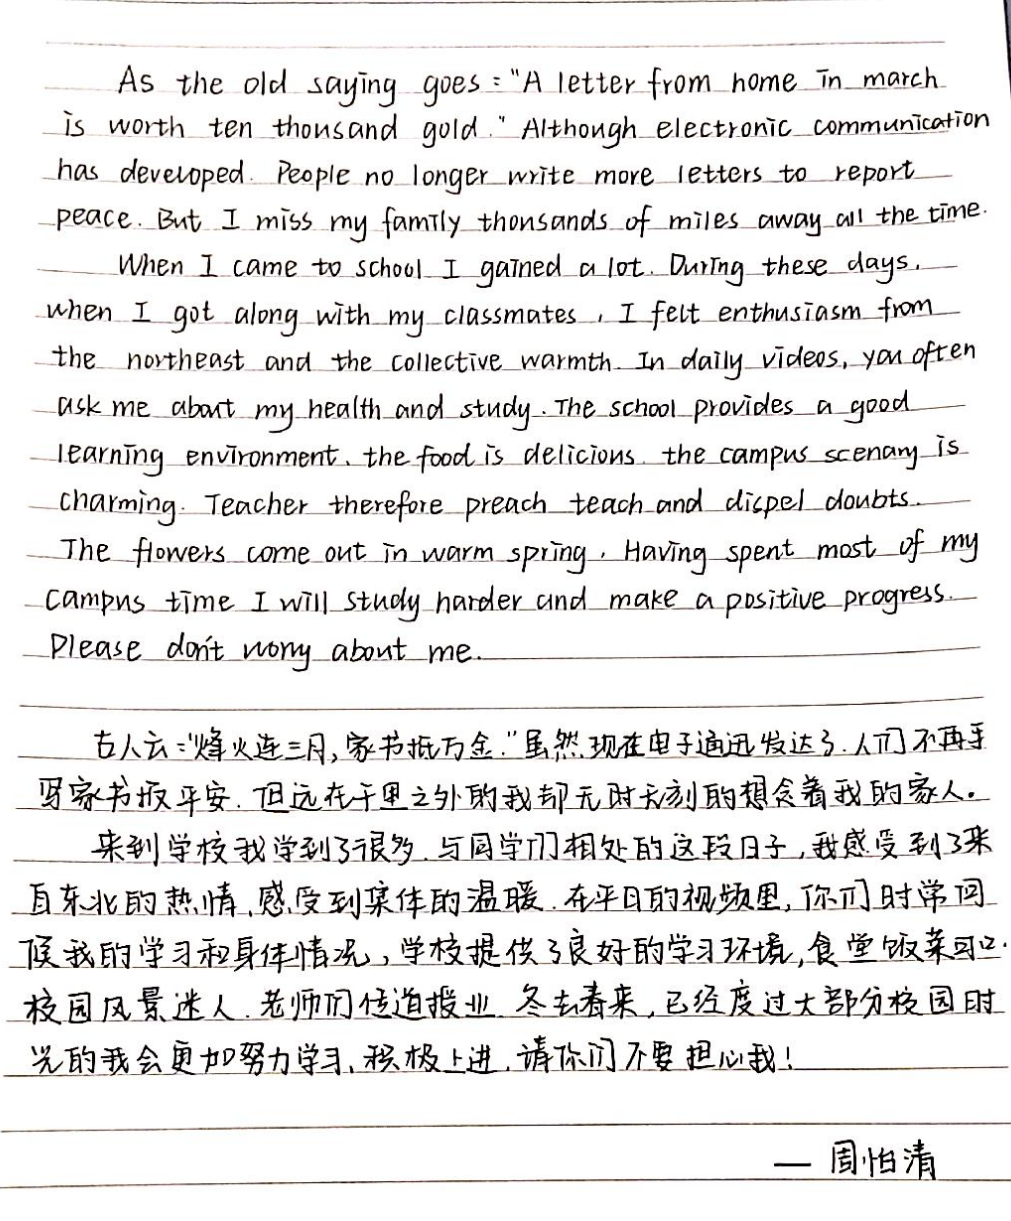 As the old saying goes : "A letter from home in march
is worth ten thousand gold." Although electronic communication
has developed. People no longer write more letters to report
peace. But I miss my family thousands of miles away all the time.
When I came to school I gained a lot. During these days,
when I got along with my classmates, I felt enthusiasm from
the northeast and the collective warmth. In daily videos, you often
ask me about my health and study. The school provides a good
learning environment, the food is delicious, the campus scenary is
charming. Teacher therefore preach teach and dispel doubts.
The flowers come out in warm spring, Having spent most of my
campus time I will study harder and make a positive progress.
Please don't worry about me.
古人云:"烽火连三月,家书抵万金."虽然现在电子通迅发达了.人们不再手
写家书报平安.但远在千里之外的我却无时无刻的想念着我的家人。
来到学校我学到了很多.与同学们相处的这段日子,我感受到了来
自东北的热情,感受到集体的温暖.在平日的视频里,你们时常问
候我的学习和身体情况,学校提供了良好的学习环境,食堂饭菜可口.
校园风景迷人.老师们传道授业.冬去春来,已经度过大部分校园时
光的我会更加努力学习,积极上进.请你们不要担心我!
— 周怡清